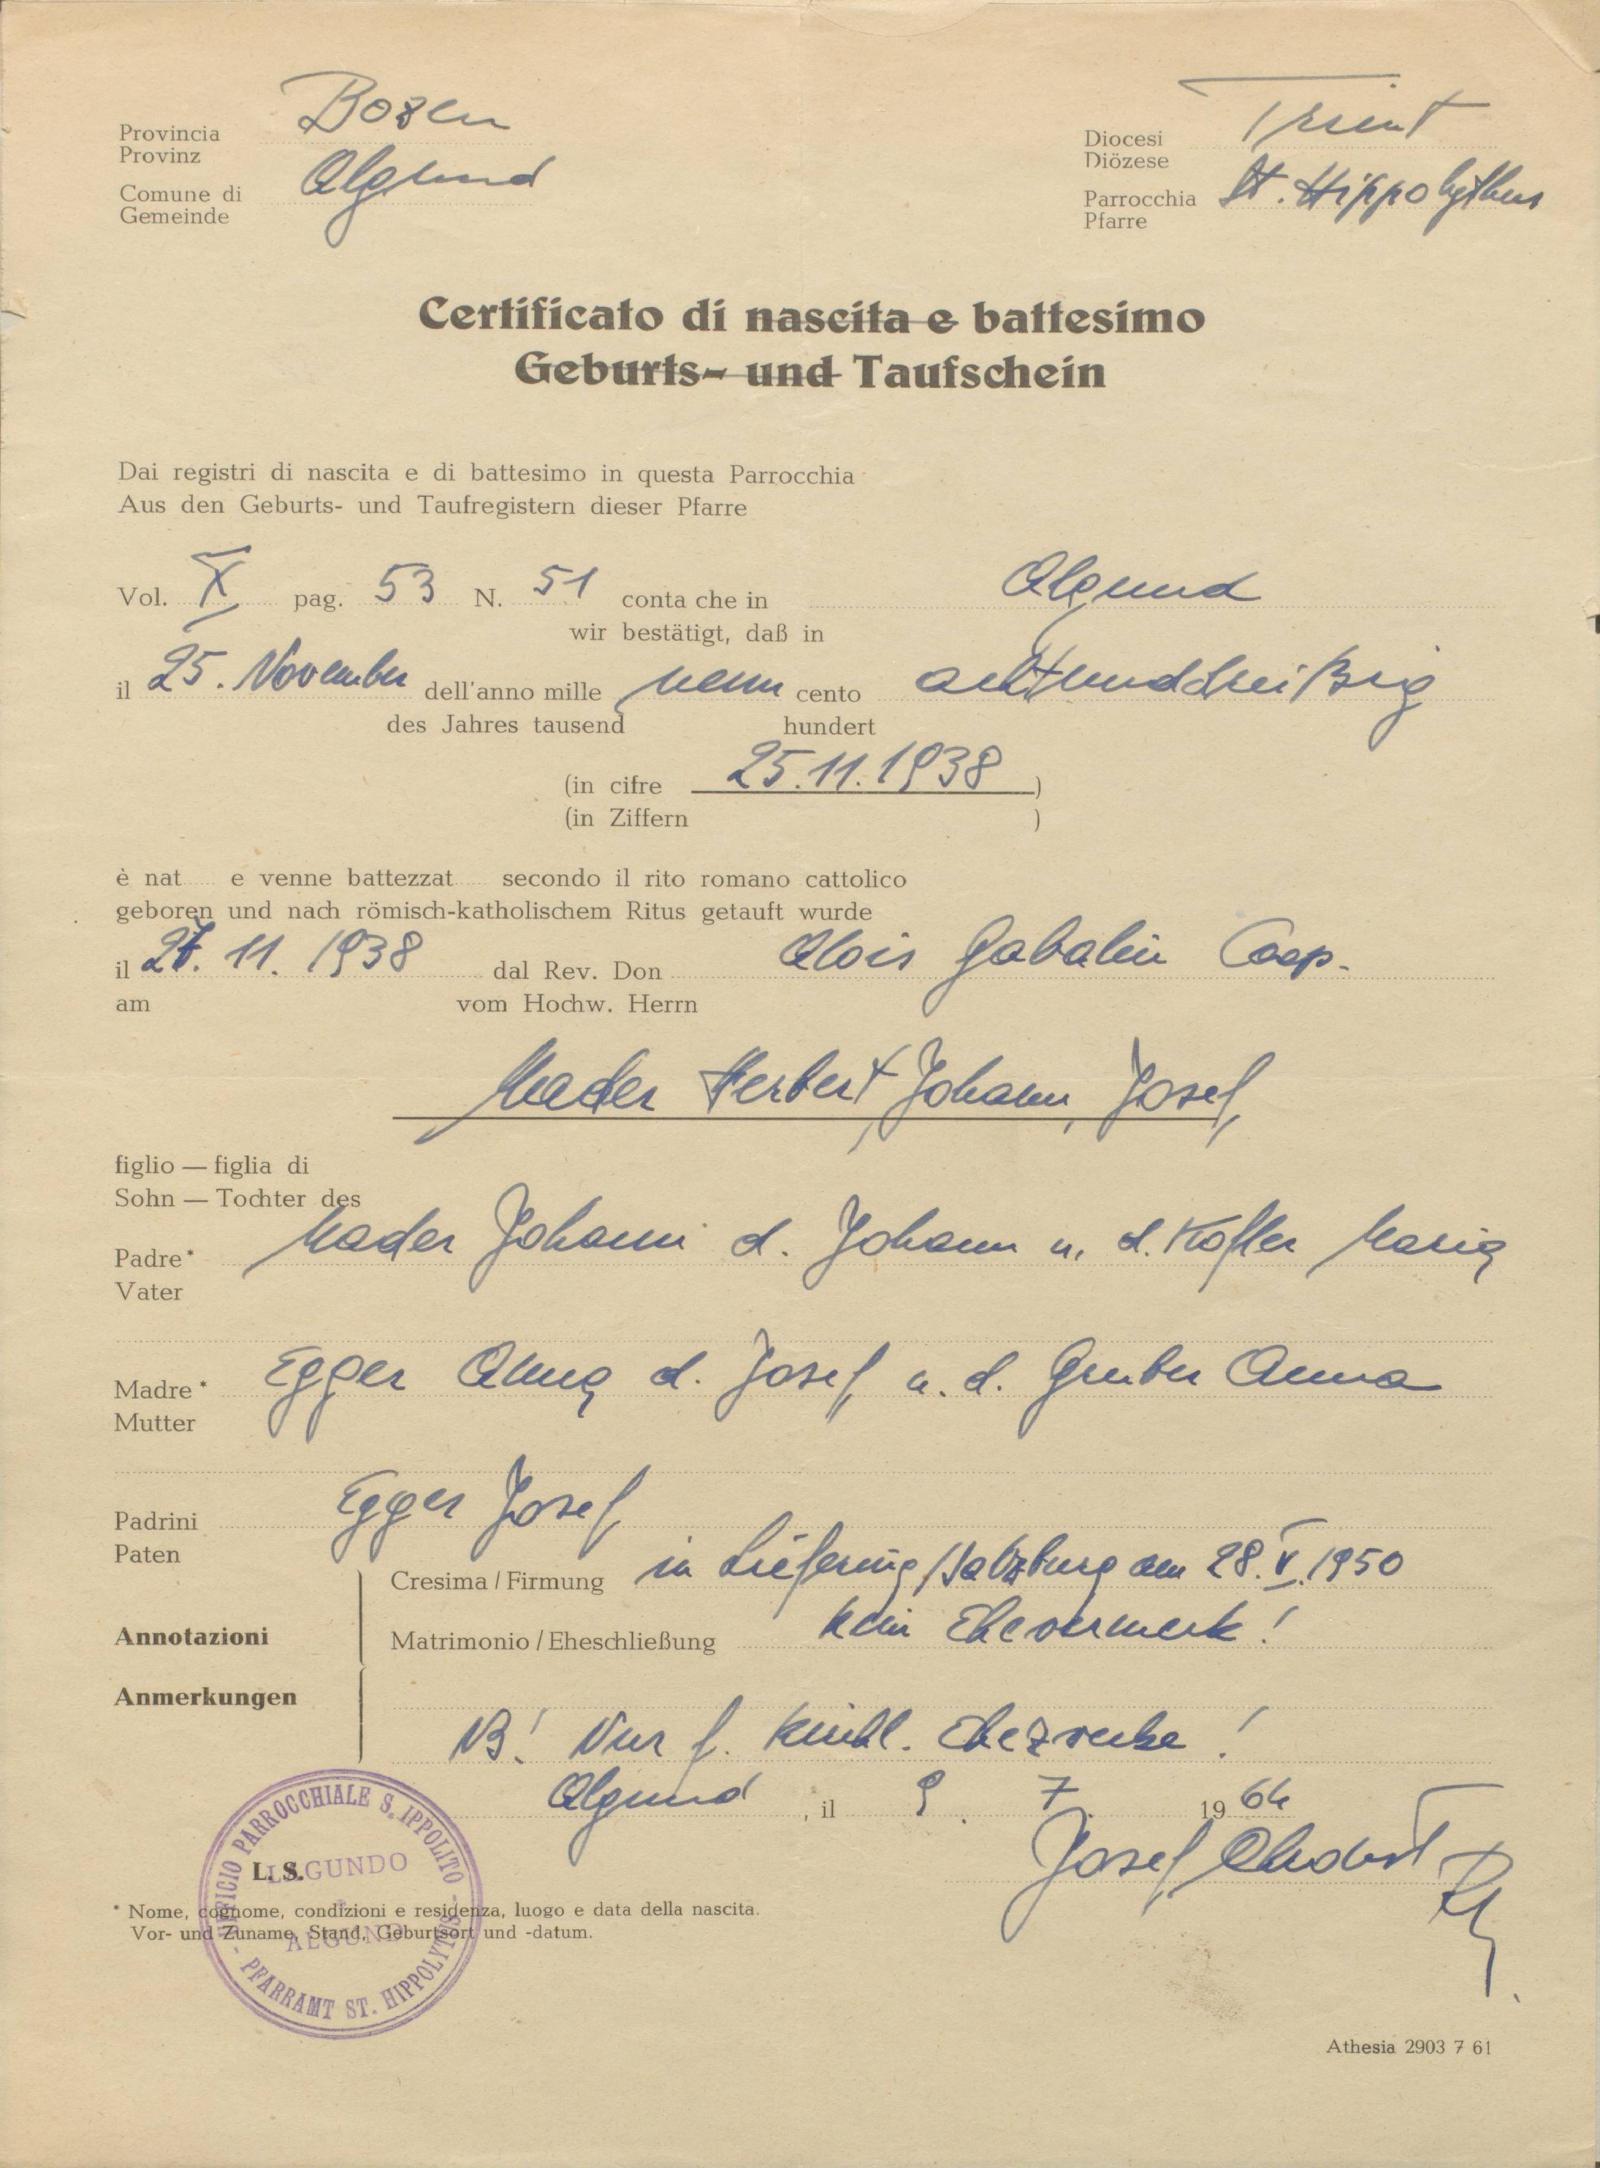 Provincia Bozen
Provinz
Comune di Algund
Gemeinde
Diocesi Trient
Diözese
Parrocchia St. Hippolythus
Pfarre
Certificato di nascita e battesimo
Geburts- und Taufschein
Dai registri di nascita e di battesimo in questa Parrocchia
Aus den Geburts- und Taufregistern dieser Pfarre
Vol. X pag. 53 N. 51 conta che in Algund
wir bestätigt, daß in
il 25. November dell'anno mille neun cento achtunddreißig
des Jahres tausend hundert
(in cifre 25.11.1938 )
(in Ziffern )
è nat e venne battezzat secondo il rito romano cattolico
geboren und nach römisch-katholischem Ritus getauft wurde
il 27. 11. 1938 dal Rev. Don Alois Coop.
am vom Hochw. Herrn
Mader Herbert, Johann, Josef
figlio — figlia di
Sohn — Tochter des
Padre* Mader Johann d. Johann u. d. Kofler Maria
Vater
Madre* Egger Anna d. Josef u. d. Gruber Anna
Mutter
Padrini Egger Josef
Paten
Cresima / Firmung in Liefering/Salzburg am 28. V. 1950
Annotazioni
Matrimonio / Eheschließung kein Ehevermerk!
Anmerkungen
NB! Nur f. kirchl. Ehezwecke!
Algund, il 9. 7. 1964
Josef
L. S.
UFFICIO PARROCCHIALE S. IPPOLITO
LAGUNDO
ALGUND
- PFARRAMT ST. HIPPOLYTUS -
* Nome, cognome, condizioni e residenza, luogo e data della nascita.
Vor- und Zuname, Stand, Geburtsort und -datum.
Athesia 2903 7 61